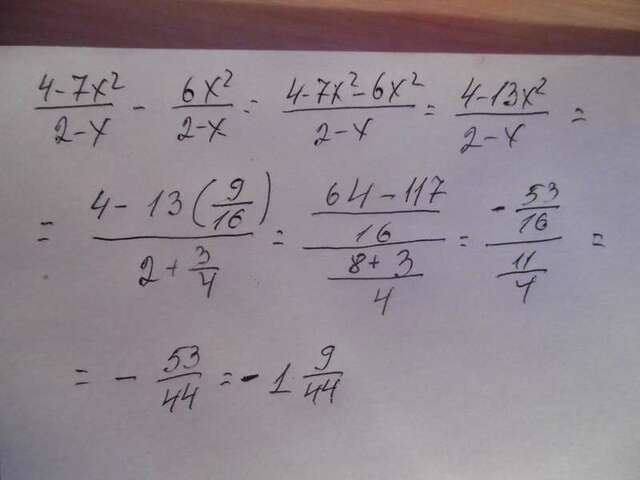 (4-7x²)/(2-x) - 6x²/(2-x) = (4-7x²-6x²)/(2-x) = (4-13x²)/(2-x) =
= (4-13(9/16))/(2+3/4) = ((64-117)/16)/((8+3)/4) = (-53/16)/(11/4) =
= -53/44 = -1 9/44